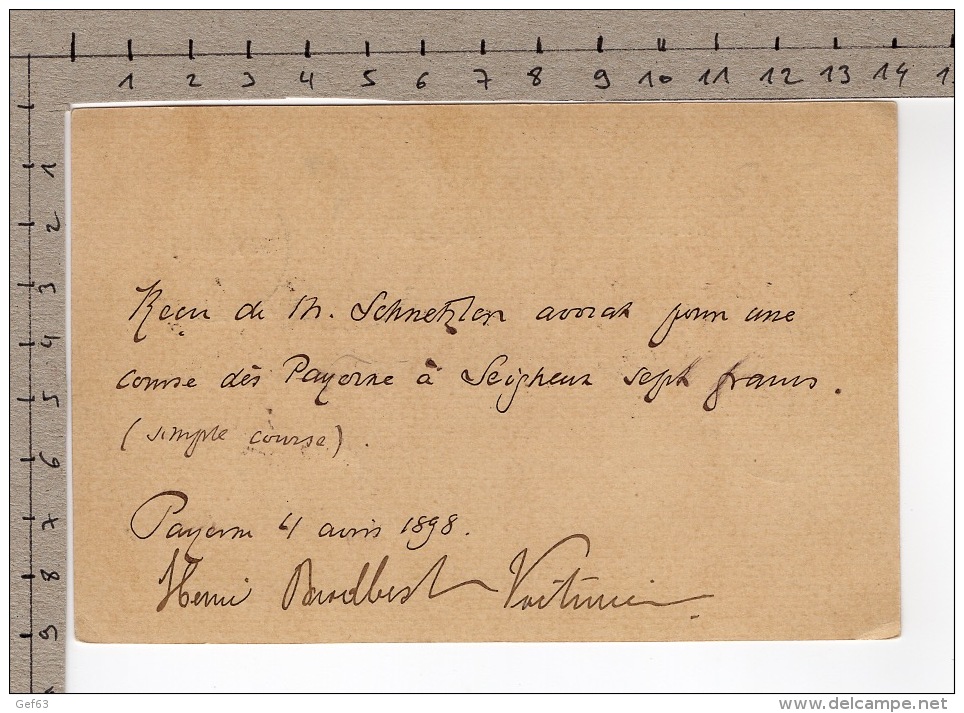 1 2 3 4 5 6 7 8 9 10 11 12 13 14 1
1
2
3
4
5
6
7
8
9
Reçu de M. Schnetzler avocat pour une
course dès Payerne à Seigneux sept francs.
(simple course).
Payerne 4 avris 1898.
Henri Voiturier
Gef63
delcampe.net